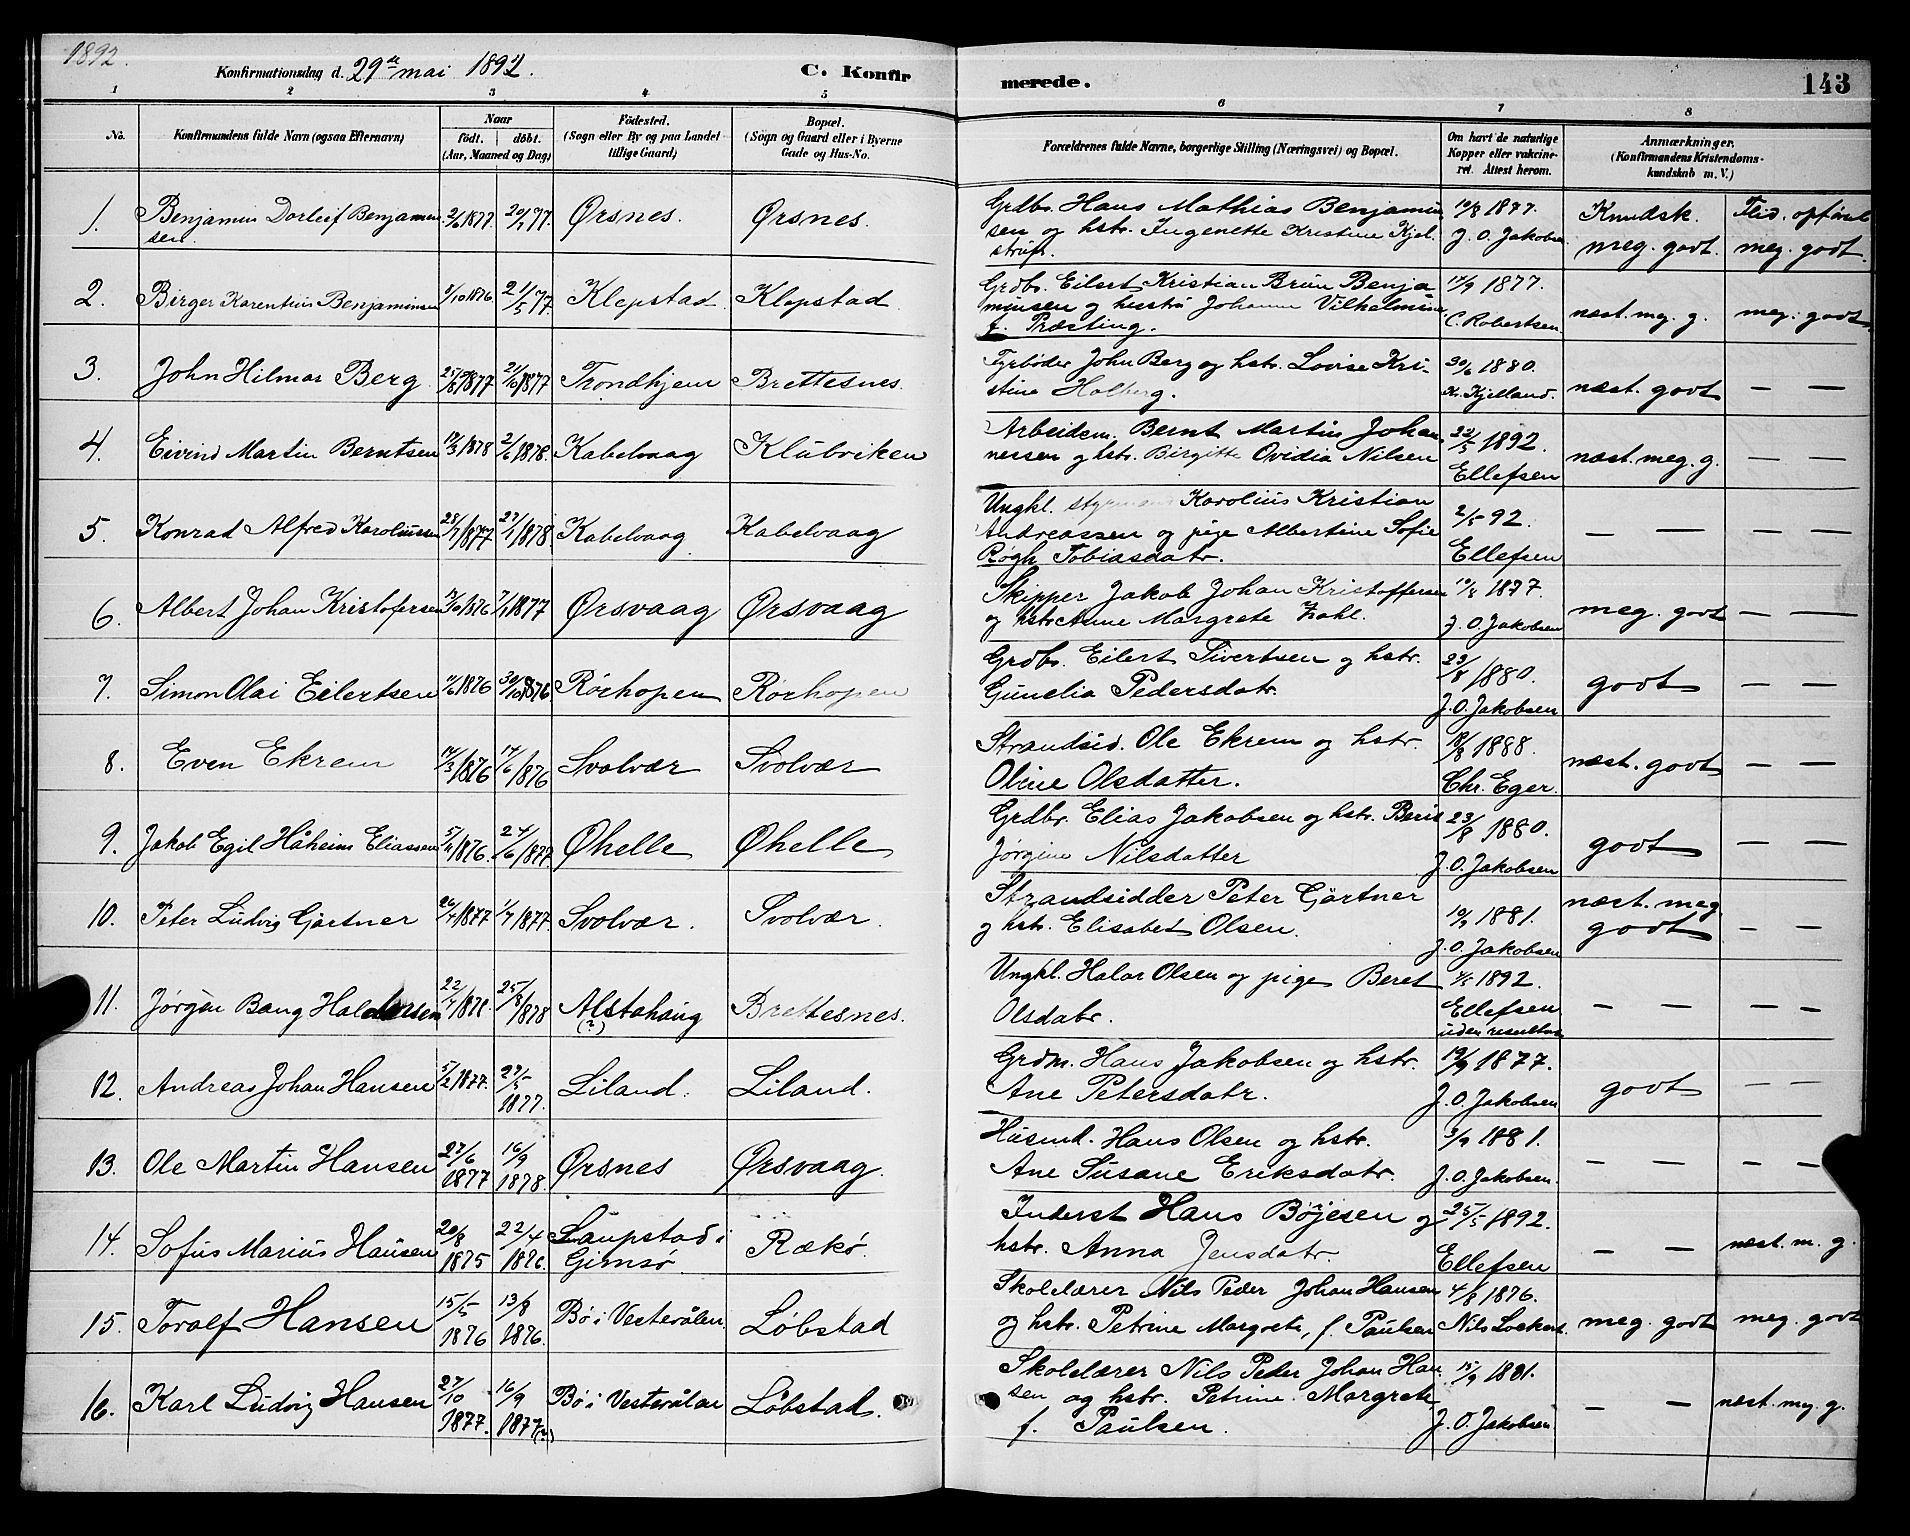 1892.
Konfirmationsdag d. 29de mai 1892. C. Konfirmerede. 143
1 2 3 4 5 6 7 8
No. Konfirmandens fulde Navn (ogsaa Efternavn) Naar født. døbt. (Aar, Maaned og Dag) Fødested. (Sogn eller By og paa Landet tillige Gaard) Bopæl. (Sogn og Gaard eller i Byerne Gade og Hus-No.) Forældrenes fulde Navne, borgerlige Stilling (Næringsvei) og Bopæl. Om havt de naturlige Kopper eller vakcineret. Attest herom. Anmærkninger. (Konfirmandens Kristendomskundskab m. V.)
1. Benjamin Dorleif Benjaminsen 2/6 1877. 20/7 77. Ørsnes. Ørsnes. Grdbr. Hans Mathias Benjamin
sen og hstr. Ingenette Kristine Kjel
strup. 19/8 1877. J. O. Jakobsen Kundsk. meg. godt. Flid. opførsel meg. godt.
2. Birger Karentius Benjaminsen 9/10 1876. 21/5 77. Klepstad Klepstad Grdbr. Eilert Kristian Brun Benja
minsen og hustru Johanna Vilhelmine
f. Præsting. 17/9 1877. C. Robertsen næst. meg. g. meg. godt
3. John Hilmar Berg 25/8 1877 21/10 1877 Trondhjem Brettesnes. Fyrbøder John Berg og hstr. Lovise Kri-
stine Holberg. 30/6 1880. Kr. Kjelland. næst. godt — —
4. Eivind Martin Berntsen 17/3 1878 2/6 1878. Kabelvaag Klubviken Arbeidsm. Bernt Martin Johan
nessen og hstr. Birgitte Ovidia Nilsen 22/5 1892. Ellefsen næst. meg. g. — —
5. Konrad Alfred Karoliussen 28/7 1877 27/1 1878. Kabelvaag Kabelvaag Ungkl. styrmand Karolius Kristian
Andreassen og pige Albertine Sofie
Røgh Tobiasdatr. 2/5 92. Ellefsen — — — —
6. Albert Johan Kristofersen 14/10 1876 7/1 1877 Ørsvaag Ørsvaag Skipper Jakob Johan Kristoffersen
og hstr Anne Margrete Zahl. 19/8 1877. J. O. Jakobsen meg. godt — —
7. Simon Olai Eilertsen 11/6 1876 30/10 1876 Rørhopen Rørhopen Grdbr. Eilert Sivertsen og hstr.
Gunelia Pedersdatr. 23/8 1880. J. O. Jakobsen godt — —
8. Even Ekrem 14/3 1876 17/6 1876 Svolvær Svolvær Strandsid. Ole Ekrem og hstr.
Oline Olsdatter. 18/8 1888. Chr. Eger. næst. godt — —
9. Jakob Egil Håheim Eliassen 5/11 1876. 24/6 1877 Øhelle Øhelle Grdbr. Elias Jakobsen og hstr. Berit
Jørgine Nilsdatter 23/8 1880. J. O. Jakobsen godt — —
10. Peter Ludvig Gjørtner 26/4 1877 1/7 1877. Svolvær. Svolvær. Strandsidder Peter Gjørtner
og hstr. Elisabet Olsen. 10/9 1881. J. O. Jakobsen næst. meg godt — —
11. Jørgen Bang Haldorsen 22/7 1878. 25/8 1878 Alstahaug (?) Brettesnes. Ungkl. Halor Olsen og pige Beret
Olsdatr. 4/5 1892. Ellefsen uden resultat — — — —
12. Andreas Johan Hansen 5/2 1877. 27/5 1877. Liland. Liland. Grdm. Hans Jakobsen og hstr.
Ane Petersdatr. 19/9 1877. J. O. Jakobsen godt — —
13. Ole Martin Hansen 27/6 1877 16/9 1878. Ørsnes Ørsvaag. Husmd. Hans Olsen og hstr.
Ane Susane Eriksdatr. 3/9 1881. J. O. Jakobsen. — — — —
14. Sofus Marius Hansen 20/8 1875 22/4 1876. Laupstad i Gimsø. Rækø. Inderst Hans Bøjesen og
hstr. Anna Jensdatr. 25/5 1892. Ellefsen — — næst. m. g.
15. Toralf Hansen 15/5 1876 13/8 1876. Bø i Vesterålen. Løbstad Skolelærer Nils Peder Johan Hansen
og hstr. Petrine Margrete, f. Paulsen 4/8 1876. Nils Lockert. meg. godt meg. godt
16. Karl Ludvig Hansen 27/10 1877. 16/9 1877 (?) Bø i Vesterålen Løbstad. Skolelærer Nils Peder Johan Han
sen og hstr. Petrine Margrete
f. Paulsen. 15/9 1881. J. O. Jakobsen — — næst. meg. g.